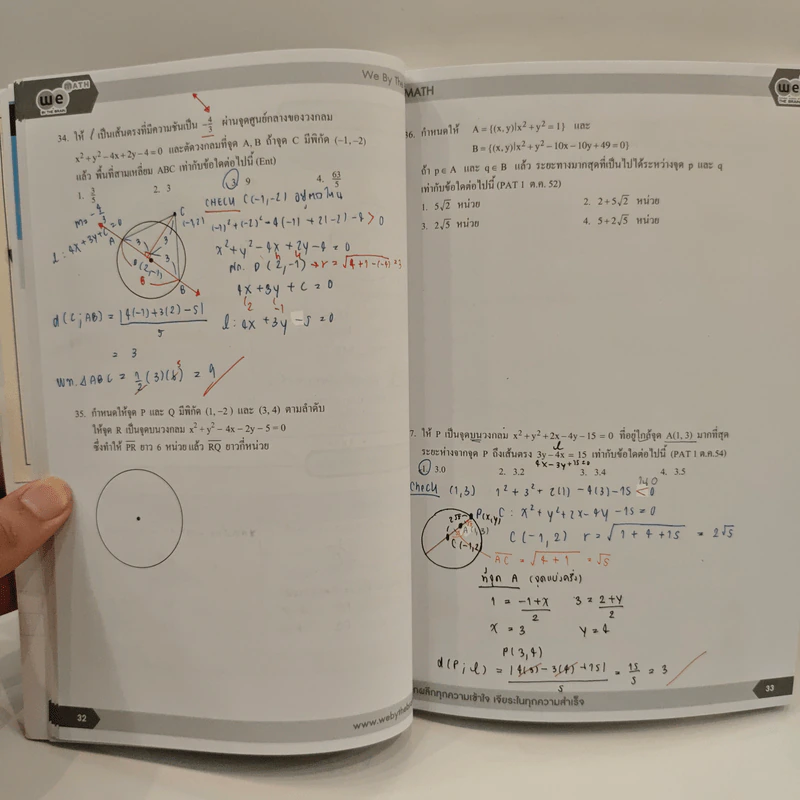 we MATH
BY THE BRAIN
34. ให้ l เป็นเส้นตรงที่มีความชันเป็น -4/3 ผ่านจุดศูนย์กลางของวงกลม
x²+y²-4x+2y-4=0 และตัดวงกลมที่จุด A, B ถ้าจุด C มีพิกัด (-1,-2)
แล้ว พื้นที่สามเหลี่ยม ABC เท่ากับข้อใดต่อไปนี้ (Ent)
1. 3/5 2. 3 3. 9 4. 63/5
CHECK C(-1,-2)
x²+y²-4x+2y-4=0
(2,-1) → r =
4x+3y+c=0
l: 4x+3y-5=0
l: 4x+3y+c=0
C
A
O(2,-1)
B
3
3
3
d(C;AB) = |4(-1)+3(2)-5|
5
= 3
= 9
35. กำหนดให้จุด P และ Q มีพิกัด (1,-2) และ (3, 4) ตามลำดับ
ให้จุด R เป็นจุดบนวงกลม x²+y²-4x-2y-5=0
ซึ่งทำให้ PR ยาว 6 หน่วยแล้ว RQ ยาวกี่หน่วย
32
www.webythebr
We By The
MATH
we MATH
BY THE BRAIN
6. กำหนดให้ A={(x,y)|x²+y²=1} และ
B={(x,y)|x²+y²-10x-10y+49=0}
ถ้า p∈A และ q∈B แล้ว ระยะทางมากสุดที่เป็นไปได้ระหว่างจุด p และ q
เท่ากับข้อใดต่อไปนี้ (PAT 1 ต.ค. 52)
1. 5√2 หน่วย 2. 2+5√2 หน่วย
3. 2√5 หน่วย 4. 5+2√5 หน่วย
7. ให้ P เป็นจุดบนวงกลม x²+y²+2x-4y-15=0 ที่อยู่ใกล้จุด A(1,3) มากที่สุด
l
ระยะห่างจากจุด P ถึงเส้นตรง 3y-4x=15 เท่ากับข้อใดต่อไปนี้ (PAT 1 ต.ค.54)
4x-3y+15=0
1. 3.0 2. 3.2 3. 3.4 4. 3.5
Check (1,3) 1²+3²+2(1)-4(3)-15 < 0
P(x,y) C: x²+y²+2x-4y-15=0
C(-1,2) r = √1+4+15 = 2√5
C(-1,2)
AC = √4+1 = √5
ที่จุด A (จุดแบ่งครึ่ง)
1 = -1+x/2 3 = 2+y/2
x = 3 y = 4
P(3,4)
= 15/5 = 3
ฝึกทุกความเข้าใจ เจียระไนทุกความสำเร็จ
33